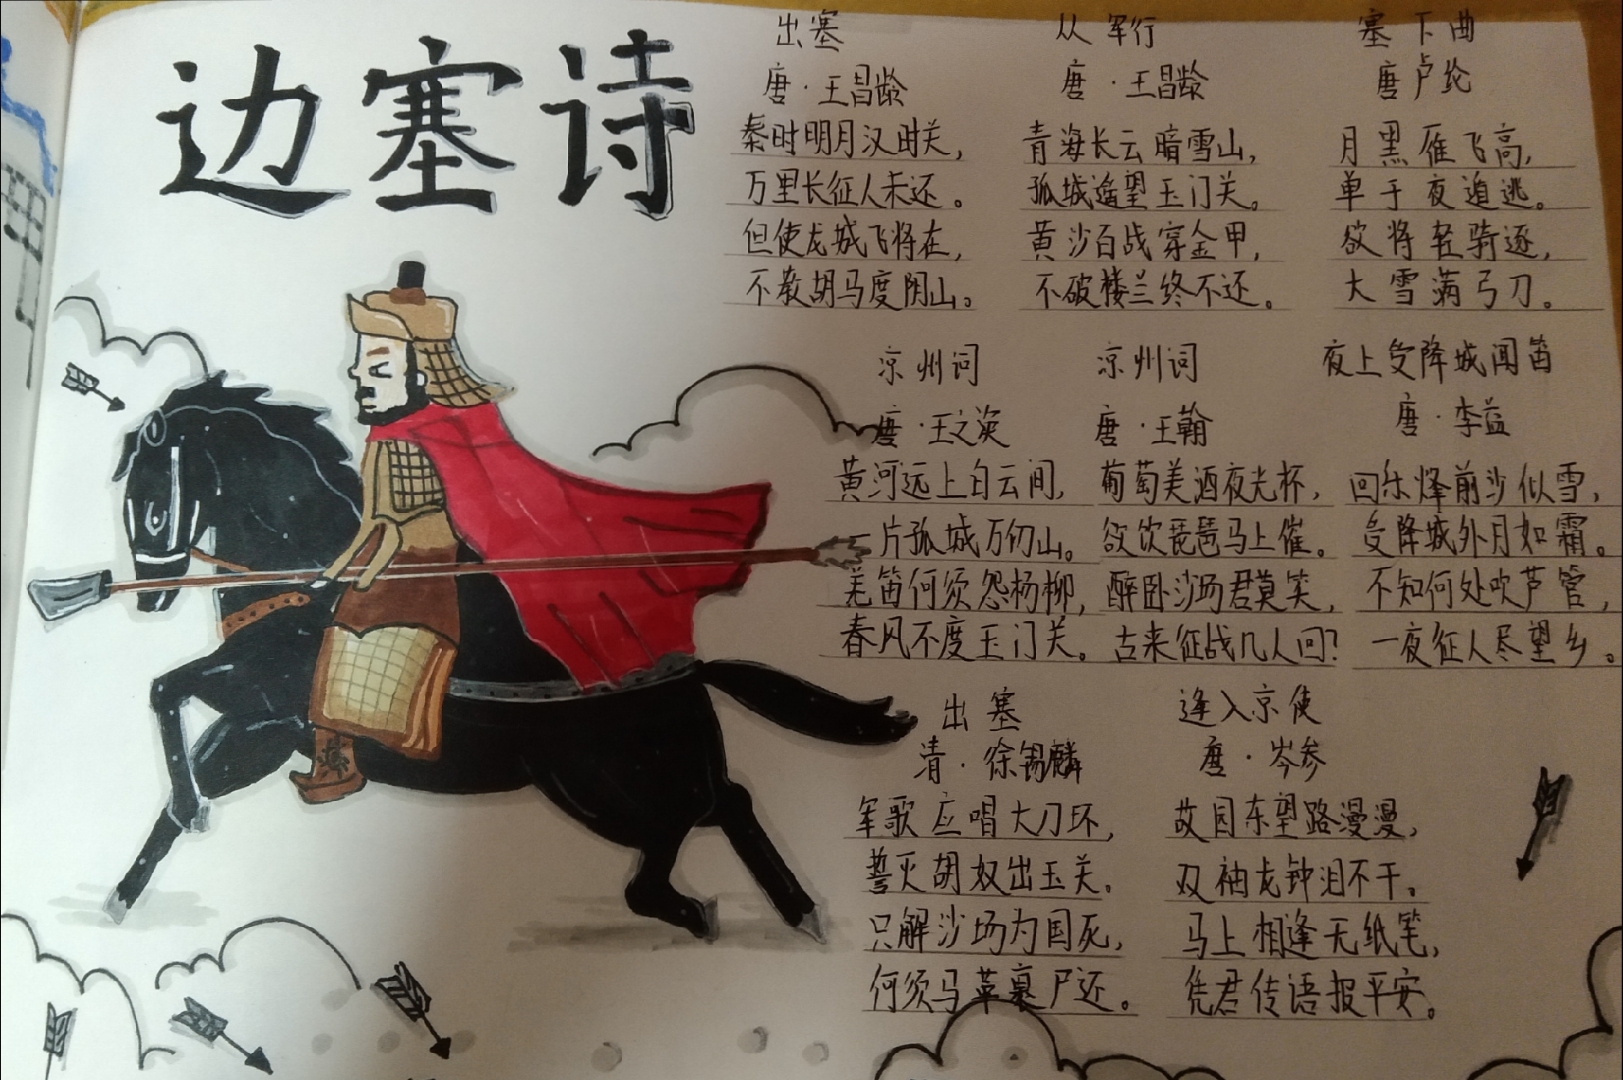 边塞诗
出塞
唐·王昌龄
秦时明月汉时关，
万里长征人未还。
但使龙城飞将在，
不教胡马度阴山。
从军行
唐·王昌龄
青海长云暗雪山，
孤城遥望玉门关。
黄沙百战穿金甲，
不破楼兰终不还。
塞下曲
唐 卢纶
月黑雁飞高，
单于夜遁逃。
欲将轻骑逐，
大雪满弓刀。
凉州词
唐·王之涣
黄河远上白云间，
一片孤城万仞山。
羌笛何须怨杨柳，
春风不度玉门关。
凉州词
唐·王翰
葡萄美酒夜光杯，
欲饮琵琶马上催。
醉卧沙场君莫笑，
古来征战几人回？
夜上受降城闻笛
唐·李益
回乐烽前沙似雪，
受降城外月如霜。
不知何处吹芦管，
一夜征人尽望乡。
出塞
清·徐锡麟
军歌应唱大刀环，
誓灭胡奴出玉关。
只解沙场为国死，
何须马革裹尸还。
逢入京使
唐·岑参
故园东望路漫漫，
双袖龙钟泪不干。
马上相逢无纸笔，
凭君传语报平安。